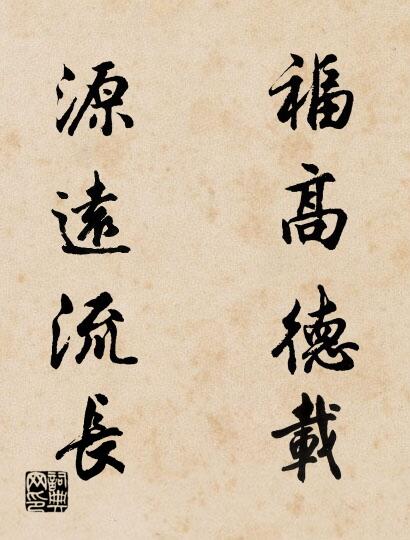 福高德載
源遠流長
詞典
网印